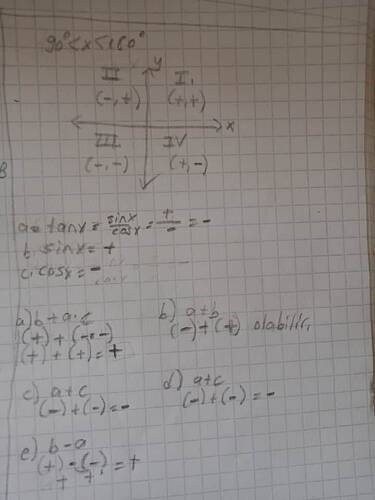 90° < x ≤ 180°
y
II I.
(-,+) (+,+)
x
III IV
(-,-) (+,-)
a= tanx = sinx/cosx = +/- = -
b. sinx = +
c. cosx = -
a) b + a·c
(+) + (-·-)
(+) + (+) = +
b) a+b
(-) + (+) olabilir.
c) a+c
(-) + (-) = -
d) a+c
(-) + (-) = -
e) b-a
(+) - (-) = +
+ +